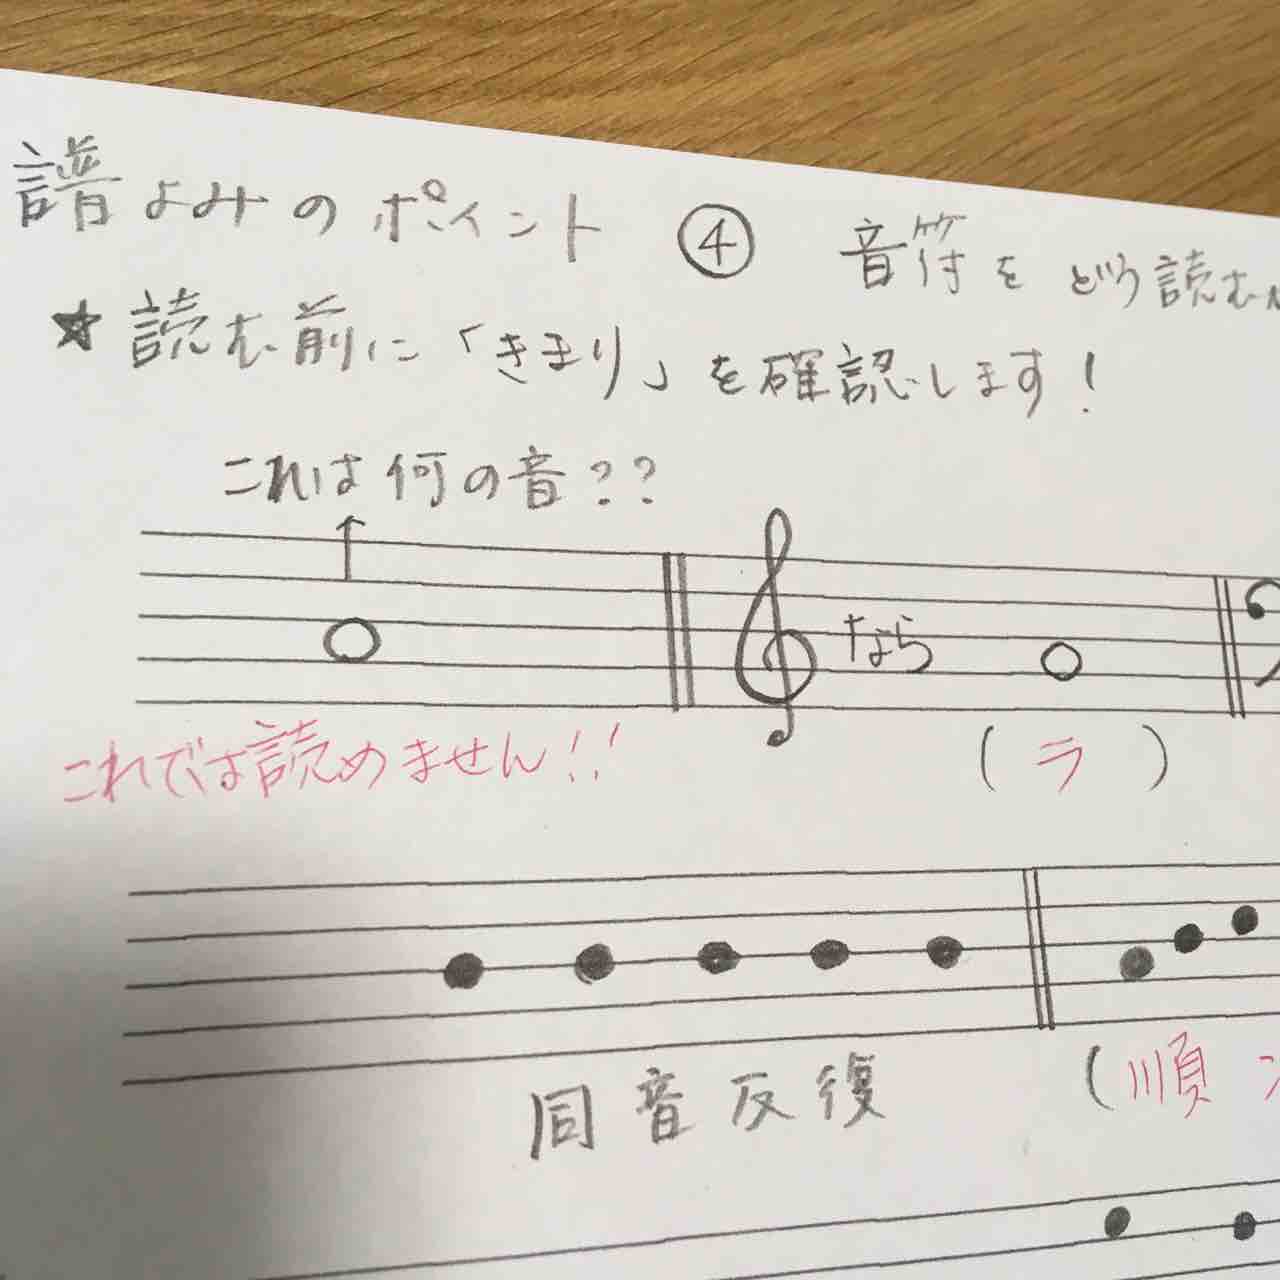 譜よみのポイント ④ 音符をどう読む
★読む前に「きまり」を確認します!
これは何の音??
なら
これでは読めません!!
(ラ)
同音反復
(順